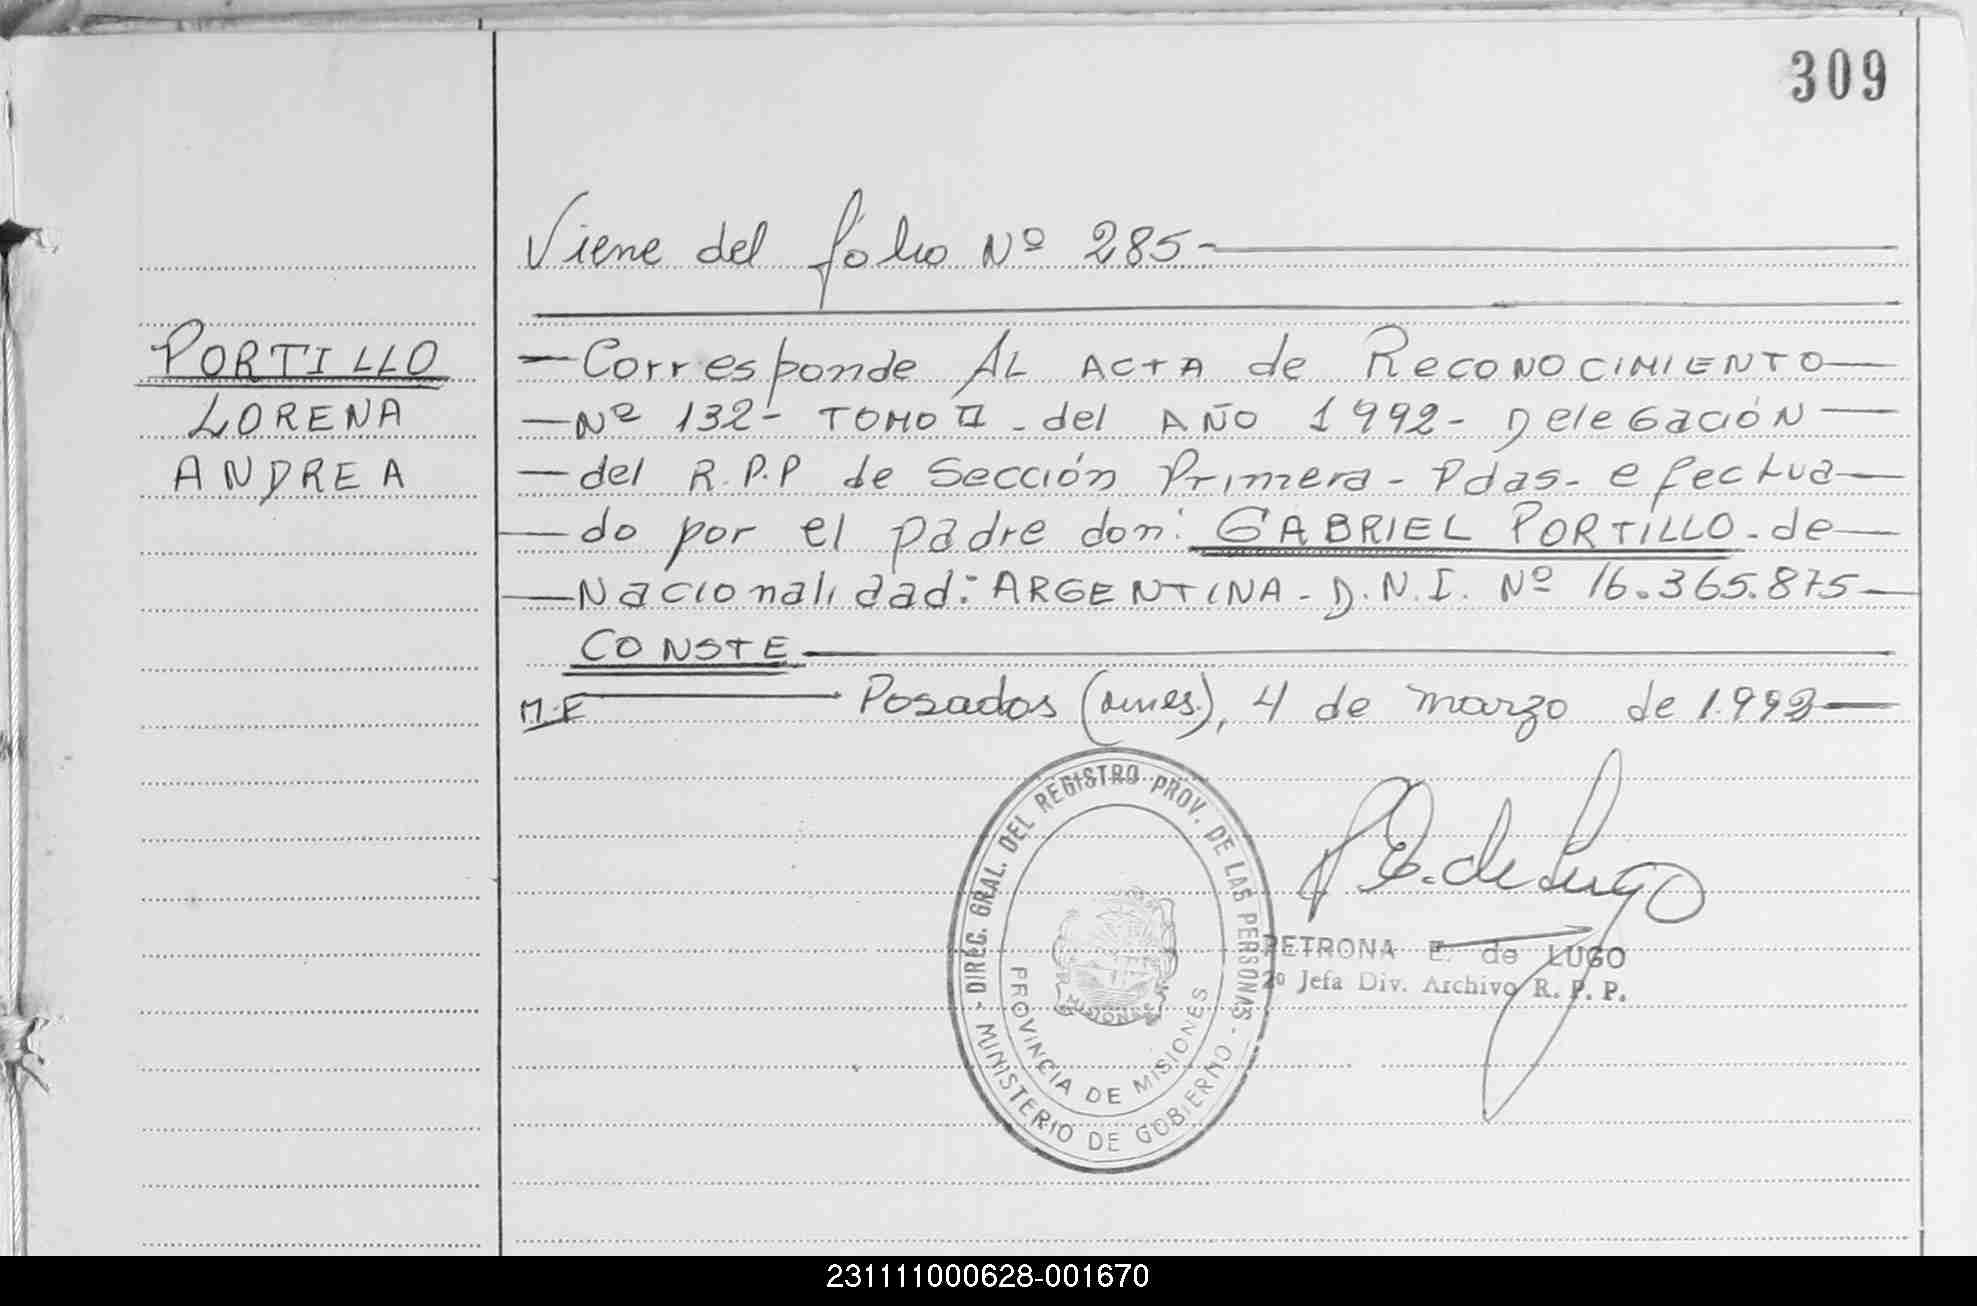 309
Viene del folio Nº 285-
PORTILLO
LORENA
ANDREA
-Corresponde AL ACTA de RECONOCIMIENTO-
-Nº 132- TOMO II - del AÑO 1992- DeleGación-
-del R.P.P de Sección Primera - Pdas- efectua-
-do por el padre don: GABRIEL PORTILLO - de-
-Nacionalidad: ARGENTINA - D.N.I. Nº 16.365.875-
CONSTE
M.E Posadas (mnes.), 4 de marzo de 1.993-
P.E. de Lugo
PETRONA E. de LUGO
2º Jefa Div. Archivo R. P. P.
- DIREC. GRAL. DEL REGISTRO PROV. DE LAS PERSONAS -
MINISTERIO DE GOBIERNO
PROVINCIA DE MISIONES
MISIONES
231111000628-001670